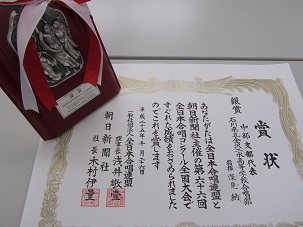 賞状
銀賞
中部支部代表
石川県立金沢二水高等学校合唱部
指揮 深見 納
あなたがたは全日本合唱連盟と
朝日新聞社主催の第六十六回
全日本合唱コンクール全国大会で
すぐれた成績をおさめられました
のでこれを賞します
平成二十五年十月二十六日
一般社団法人全日本合唱連盟
理事長 浅井敬壹
朝日新聞社
社長 木村伊量